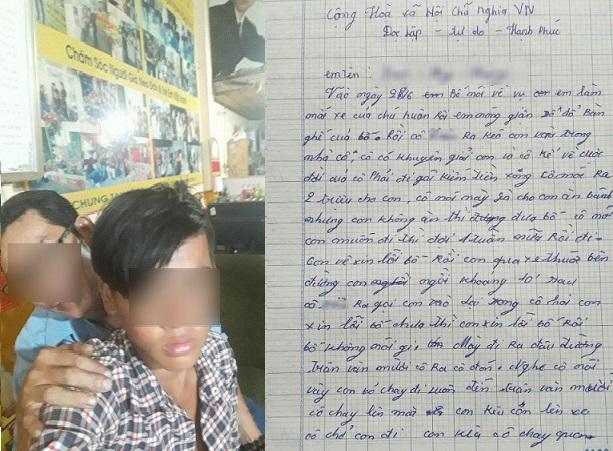 Chăm Sóc Người Già Neo Đơn & Trẻ Em
CHUNG
Cộng Hoà xã Hội Chủ nghĩa VN
Độc lập - tự do - Hạnh Phúc
em tên :
Vào ngày 28/6 em Bố nói về vụ con em làm
mất xe của chú huấn Rồi em nóng giận xô đổ Bàn
ghế của bố. Rồi cô Ra kéo con vào trong
nhà cô, cô có khuyên giải con là cô kể về cuộc
đời của cô Phải đi gái kiếm tiền xong cô móc Ra
2 triệu cho con, cô nói mấy cho con ăn bánh
nhưng con không ăn thì đừng đưa bố cô nói
con muốn đi thì đợi 1 tuần nữa Rồi đi.
Con về xin lỗi bố Rồi con qua xe thuốc bên
đường con ngồi khoảng 10' sau
cô Ra gọi con vào lại trong cô hỏi con
xin lỗi bố chưa thì con xin lỗi bố Rồi
bố không nói gì, mày đi Ra đầu đường
trần văn mười cô Ra cô đón. Nghe cô nói
vậy con bỏ chạy đi luôn đến trần văn mười
cô chạy lên mới con kêu con lên xe
cô chở con đi con kêu cô chạy qua